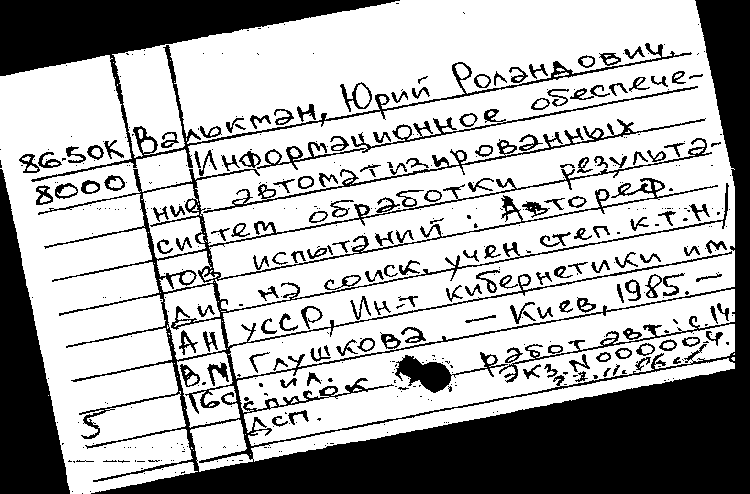 86-50К Валькман, Юрий Роландович.
8000 Информационное обеспече-
ние автоматизированных
систем обработки результа-
тов испытаний : Автореф.
дис. на соиск. учен. степ. к.т.н./
АН УССР, Ин-т кибернетики им.
В.М. Глушкова. — Киев, 1985. —
16с. : ил.
список работ авт.: с.14-
Экз. N000004.
ДСП.
5